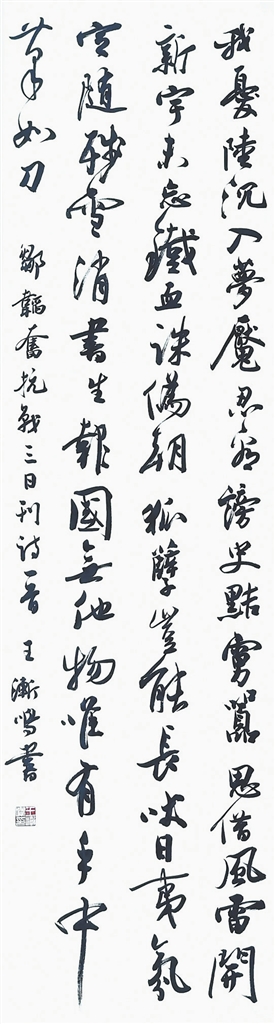 我憂陸沉入夢魘忍看謗史點囂思借風雷開
新宇未忘鐵血誅偽朝狐孽豈能長吠日夷氛
定隨殘雪消書生報國無他物唯有手中
筆如刀 鄒韜奮抗戰三日刊詩一首 王漸鳴書